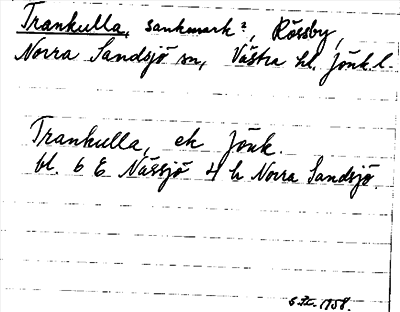 Trankulla, sankmark?, Rössby,
Norra Sandsjö sn, Västra hd, Jönk. l.
Trankulla, ek Jönk.
bl. 6 E Nässjö 4 h Norra Sandsjö.
1958.